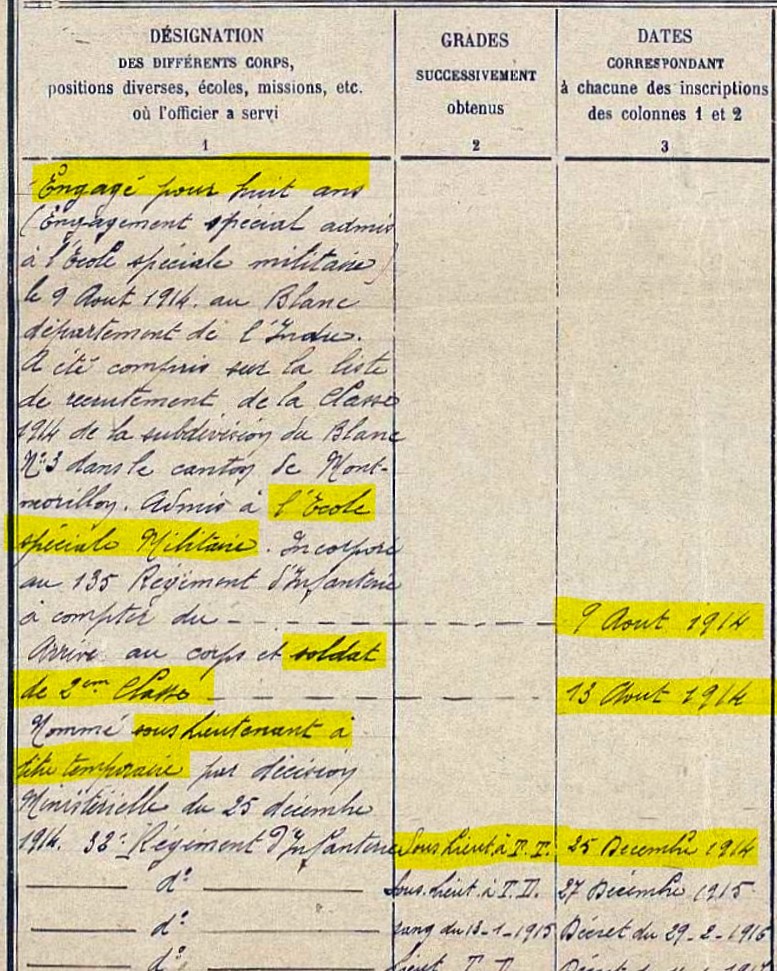 DÉSIGNATION
DES DIFFÉRENTS CORPS,
positions diverses, écoles, missions, etc.
où l'officier a servi
1
GRADES
SUCCESSIVEMENT
obtenus
2
DATES
CORRESPONDANT
à chacune des inscriptions
des colonnes 1 et 2
3
Engagé pour huit ans
(Engagement spécial admis
à l'Ecole spéciale militaire)
le 9 Aout 1914. au Blanc
département de l'Indre.
A été compris sur la liste
de recrutement de la Classe
1914 de la subdivision du Blanc
N° 3 dans le canton de Mont-
morillon. Admis à l'Ecole
spéciale Militaire. Incorporé
au 135 Régiment d'Infanterie
à compter du 9 Aout 1914
Arrivé au corps et soldat
de 2em Classe 13 Aout 1914
Nommé sous Lieutenant à
titre temporaire par décision
Ministérielle du 25 décembre
1914. 32e Régiment d'Infanterie Sous Lieut à T. T. 25 Decembre 1914
d° Sous. Lieut. à T. D. 27 Décembre 1915
d° rang du 13-1-1915 Décret du 29-2-1916
d° Lieut T. T.